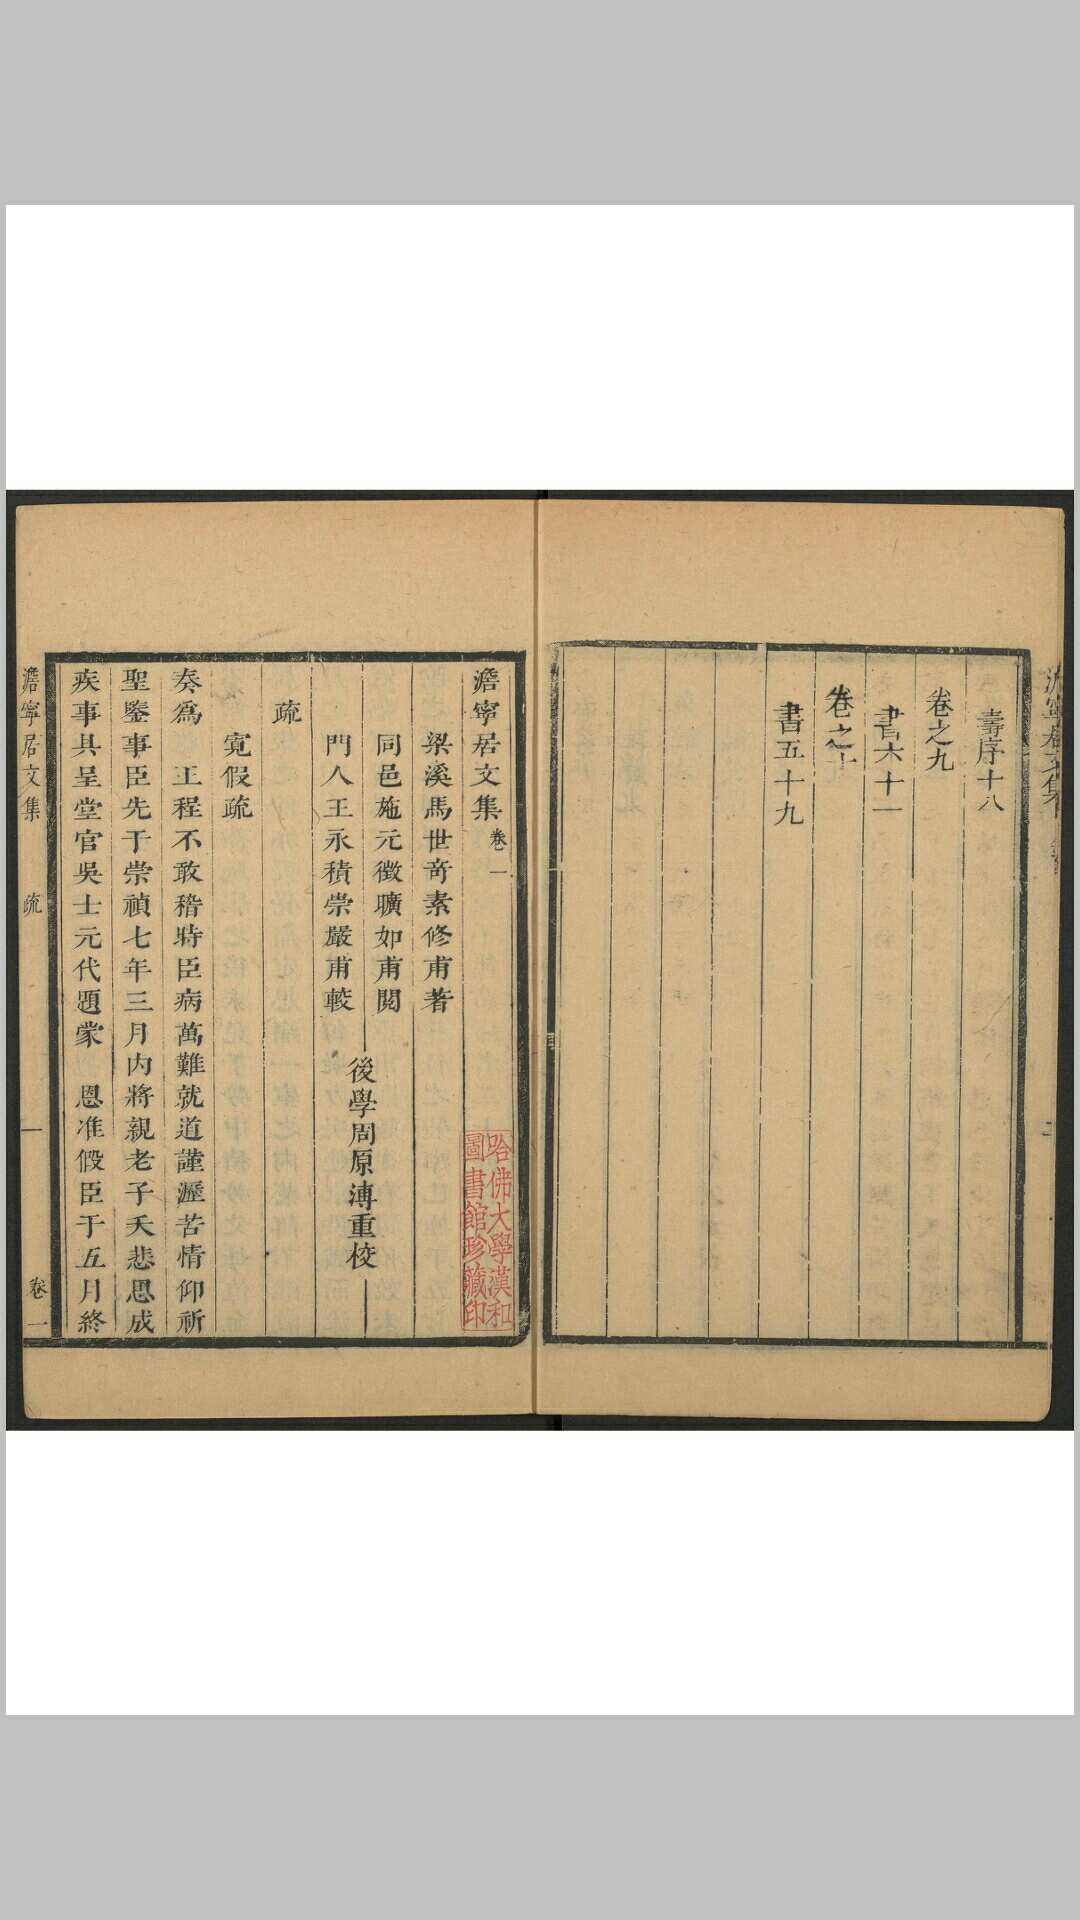 壽序十八
卷之九
書六十一
卷之十
書五十九
澹寧居文集 卷一
梁溪馬世奇素修甫著
同邑施元徵曠如甫閱
門人王永積崇嚴甫較
後學周原溥重校
疏
寬假疏
奏爲 王程不敢稽時臣病萬難就道謹瀝苦情仰祈
聖鑒事臣先于崇禎七年三月內將親老子夭悲思成
疾事具呈堂官吳士元代題蒙 恩准假臣于五月終
澹寧居文集 疏 一 卷一
哈佛大學漢和
圖書館珍藏印